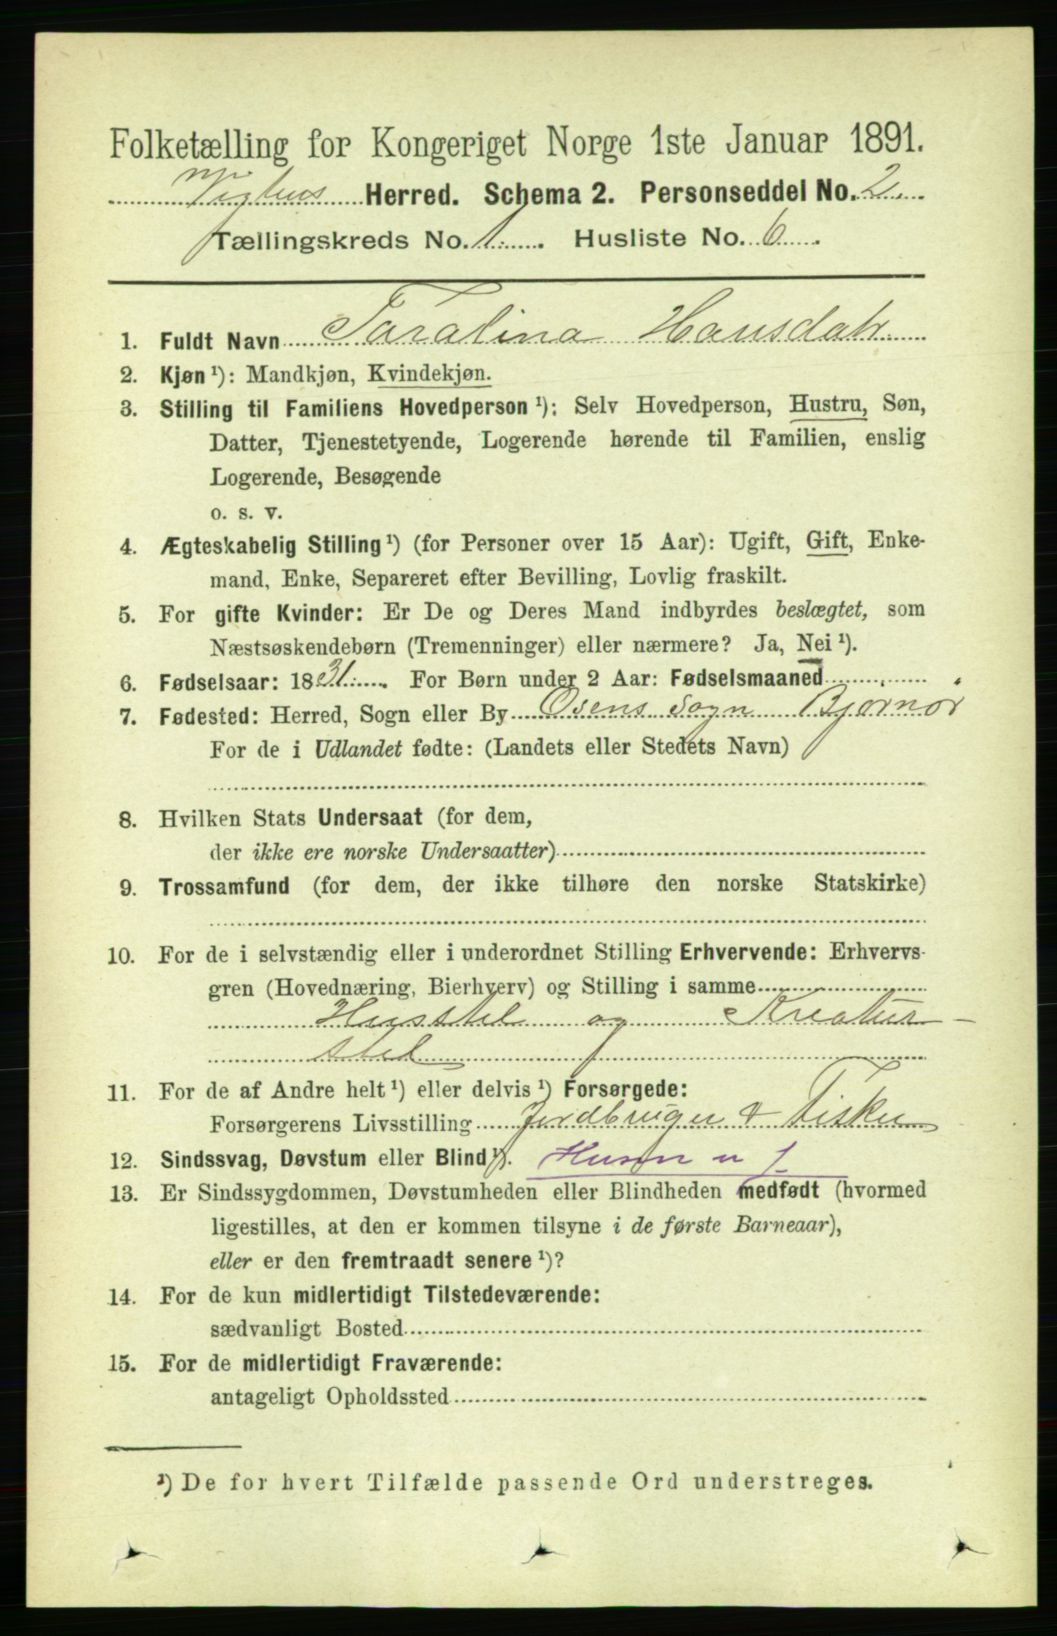 Folketælling for Kongeriget Norge 1ste Januar 1891.
Vigtens Herred. Schema 2. Personseddel No. 2.
Tællingskreds No. 1. Husliste No. 6.
1. Fuldt Navn Taralina Hansdatr.
2. Kjøn ¹): Mandkjøn, Kvindekjøn.
3. Stilling til Familiens Hovedperson ¹): Selv Hovedperson, Hustru, Søn,
Datter, Tjenestetyende, Logerende hørende til Familien, enslig
Logerende, Besøgende
o. s. v.
4. Ægteskabelig Stilling ¹) (for Personer over 15 Aar): Ugift, Gift, Enke-
mand, Enke, Separeret efter Bevilling, Lovlig fraskilt.
5. For gifte Kvinder: Er De og Deres Mand indbyrdes beslægtet, som
Næstsøskendebørn (Tremenninger) eller nærmere? Ja, Nei ¹).
6. Fødselsaar: 1831. For Børn under 2 Aar: Fødselsmaaned
7. Fødested: Herred, Sogn eller By Osens Sogn Bjørnør
For de i Udlandet fødte: (Landets eller Stedets Navn)
8. Hvilken Stats Undersaat (for dem,
der ikke ere norske Undersaatter)
9. Trossamfund (for dem, der ikke tilhøre den norske Statskirke)
10. For de i selvstændig eller i underordnet Stilling Erhvervende: Erhvervs-
gren (Hovednæring, Bierhverv) og Stilling i samme
Husstel og Kreatur-
stel
11. For de af Andre helt ¹) eller delvis ¹) Forsørgede:
Forsørgerens Livsstilling Jordbruger & Fisker
12. Sindssvag, Døvstum eller Blind ¹).
13. Er Sindssygdommen, Døvstumheden eller Blindheden medfødt (hvormed
ligestilles, at den er kommen tilsyne i de første Barneaar),
eller er den fremtraadt senere ¹)?
14. For de kun midlertidigt Tilstedeværende:
sædvanligt Bosted
15. For de midlertidigt Fraværende:
antageligt Opholdssted
¹) De for hvert Tilfælde passende Ord understreges.